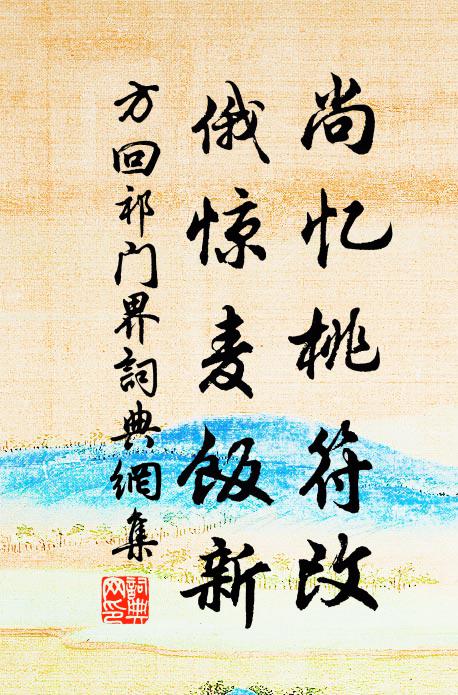 尚忆桃符改
俄惊麦飯新
方回祁门界詞典網集